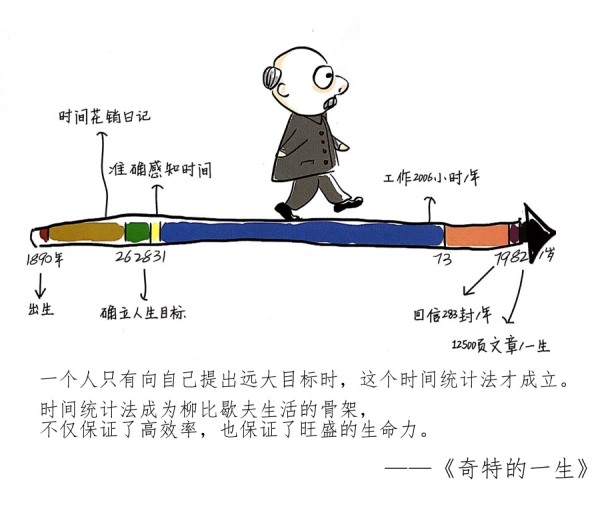 时间花销日记
准确感知时间
工作2006小时/年
1890年 26 28 31 73 79 82 /岁
出生
确立人生目标
回信283封/年
12500页文章/一生
一个人只有向自己提出远大目标时，这个时间统计法才成立。
时间统计法成为柳比歇夫生活的骨架，
不仅保证了高效率，也保证了旺盛的生命力。
——《奇特的一生》